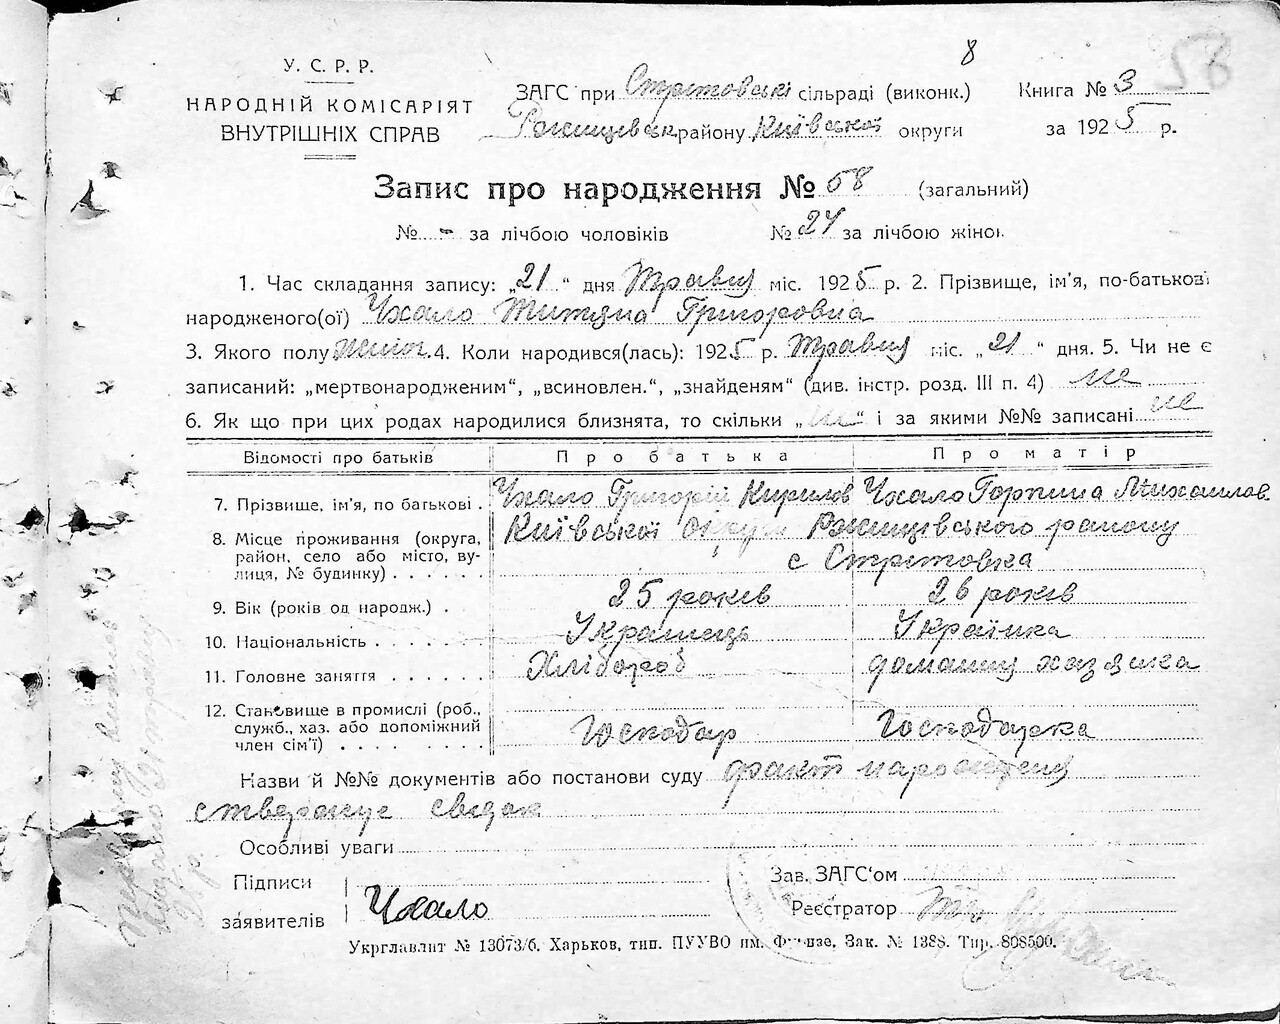 8
58
У. С. Р. Р.
НАРОДНІЙ КОМІСАРІЯТ
ВНУТРІШНІХ СПРАВ
ЗАГС при Стрітовські сільраді (виконк.)
Ржищевськ. району Київської округи
Книга № 3
за 1925 р.
Запис про народження № 58 (загальний)
№ - за лічбою чоловіків № 24 за лічбою жінок.
1. Час складання запису: „21“ дня Травня міс. 1925 р. 2. Прізвище, ім'я, по-батькові
народженого(ої) Ухало Титяна Григоровна
3. Якого полу жіноч. 4. Коли народився(лась): 1925 р. Травня міс. „21“ дня. 5. Чи не є
записаний: „мертвонародженим“, „всиновлен.“, „знайденям“ (див. інстр. розд. III п. 4) не
6. Як що при цих родах народилися близнята, то скільки „не“ і за якими №№ записані не
Відомості про батьків Про батька Про матір
7. Прізвище, ім'я, по батькові . Ухало Григорій Кирилов Ухало Горпина Михаилов.
8. Місце проживання (округа, район, село або місто, вулиця, № будинку) . . . . . . Київської округи Ржищевського району
с Стрітовка
9. Вік (років од народж.) . 25 років 26 років
10. Національність . . . . . . Українець Українка
11. Головне заняття . . . . . . Хлібороб домашня хазяйка
12. Становище в промислі (роб., служб., хаз. або допоміжний член сім'ї) . . . . . Господар Господарка
Назви й №№ документів або постанови суду факт народження
стверджує свідок
Особливі уваги
Підписи
заявителів Ухало
Зав. ЗАГС'ом
Реєстратор
Укрглавлит № 13073/б. Харьков, тип. ПУУВО им. Фрунзе. Зак. № 1388. Тир. 808500.